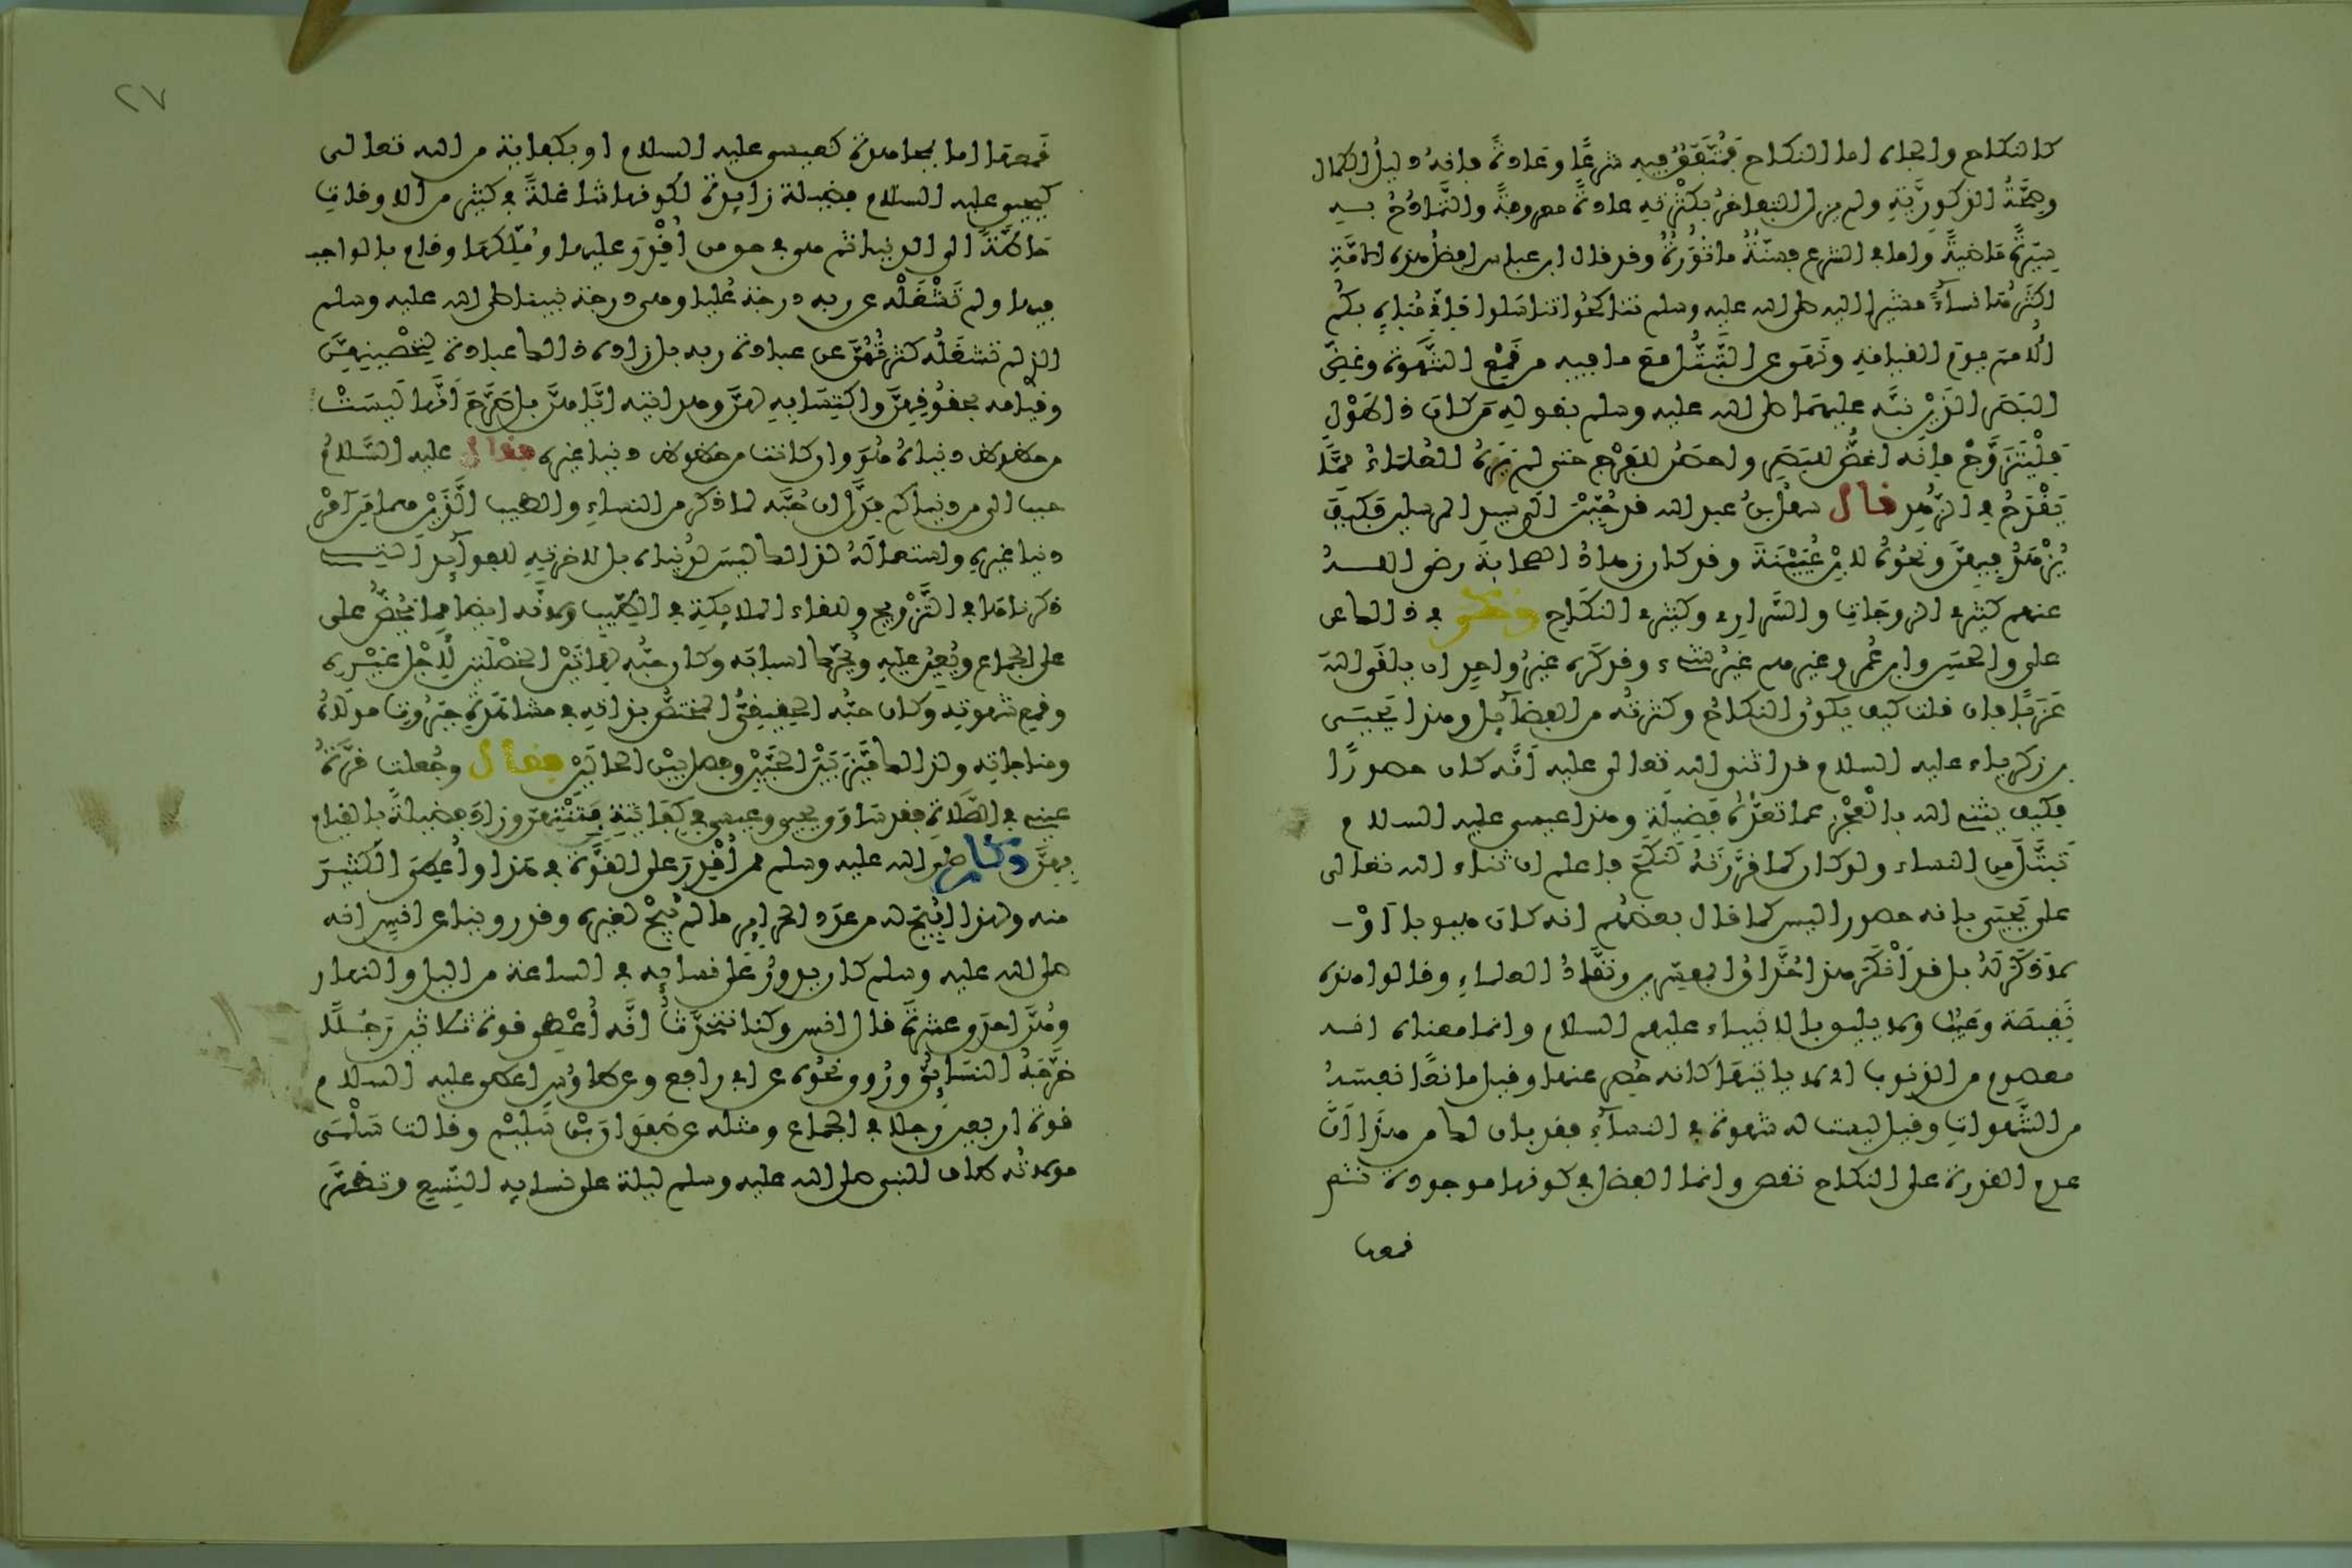 كالنكاح والجاه اما النكاح فمُتَّفَقٌ فيه شرعًا وعَادةً فانه دليلُ الكمال
وصِحَّةُ الذكوريَّةِ ولم يزل التفاخرُ بكثرتِهِ عادةً معروفةً والتَّمَادُحُ بـه
سِيرةً مَاضيةً واما في الشرع فسنّةٌ مَاثورةٌ وقد قال ابن عباس افضلُ هذه الامَّةِ
اكثرُهَا نساءً مشيرا اليه صلى الله عليه وسلم تناكحُوا تناسَلوا فإنّي مُبَاهٍ بكمُ
الُامَمَ يومَ القيامةِ ونَهَى عن التَّبَتُّلِ مَعَ ما فيه من قَمْعِ الشَّهوة وغضِّ
البَصَرِ الذَيْن نبَّه عليهمَا صلى الله عليه وسلم بقولهِ مَن كانَ ذا طَوْلٍ
فَلْيَتَزَوَّجْ فإنَّه اغضُّ للبَصَرِ واحصَنُ للفرْجِ حتى لم يَرَهُ العُلمَاءُ ممَّا
يَقْدَحُ في الزُّهدِ قال سهلُ بنُ عبد الله قد حُبِّبْنَ الَى سيد المرسلين فَكيفَ
يُزْهَدُ فيهنَّ ونَحْوُهُ لابْنِ عُيَيْنَةَ وقد كان زهادُ الصحابَةِ رضي اللــه
عنهم كثيرِي الزوجَاتِ والسَّرارِي وكثيرِي النكَاحِ وحكى في ذالك عن
علي والحسَن وابن عُمر وغيرهم غيرُ شيء وقد كَرِه غيرُ واحدٍ ان يلقَى اللهَ
عَزَبًا فان قلت كيف يكونُ النكاحُ وكثرتُه من الفضآئِل وهذا يَحيَى
بن زكرياء عليه السلام قد اثنى الله تعالى عليه أنَّه كان حصورًا
فكيف يثني الله بالعجْزِ عما تعُدُّهُ فَضِيلَة وهذا عيسى عليه السلام
تَبَتَّلَ من النساء ولو كان كما قرَّرْتَهُ لَنَكَحَ فاعلم ان ثناء الله تعالى
على يَحْيَى بانه حصور ليس كما قال بعضُهم انه كان هيوبا أوْ
لا ذَكَرَ لَهُ بل قد أَنْكَرَ هذا حُذَّاقُ المفسّرين ونُقَّادُ العلماءِ وقالوا هذه
نَقِيصَة وعَيْبٌ ولا يليق بالانبياء عليهم السلام وانما معناه انــه
معصوم من الذنوب اي لا ياتيهَا كانه حُصِر عنها وقيل مانعًا نَفسَهُ
من الشَّهواتِ وقيل ليست له شهوة في النسآءِ فقد بان لك من هذَا أَنَّ
عدم القدرة على النكاح نقص وانما الفضل في كونها موجودة ثم
قمعها
٢٧
قمعها اما بمجاهدة كعيسى عليه السلام او بكفاية من الله تعالى
كيحيى عليه السلام فضيلة زايدة لكونها شاغلةً في كثير من الاوقاتِ
حَاطَّةً الى الدنيا ثم هي في حق من أُقْدِرَ عليها ومُلِّكَهَا وقام بالواجب
فيها ولم تَشْغَلْه عن ربه درجَة عُليا وهي درجَة نبينا صلى الله عليه وسلم
الذي لم تشغَلْه كثرتُهُنَّ عن عبادة ربه بل زاده ذالك عبادة لِتحْصينِهِنَّ
وقيامه بحقُوقِهِنَّ واكتِسَابِهِ لهنَّ وهدايته ايَّاهنَّ بل صَرَّحَ أَنَّها لَيسَتْ
من حظوظ دنياهُ هُوَ وان كانت من حظوظ دنيا غيره فقال عليه السَّلامُ
حبب الي من دنياكم فدَلَّ ان حُبَّه لما ذكر من النساءِ والطيب الَّذَيْن هما مِن أمْر
دنيا غيرِهِ واستعمالَهُ لذالك ليسَ لدُنياه بل لاخرتِهِ للفوآئِد التــي
ذكرناهَا في التَّزْويج وللقاء الملايكةِ في الطِّيبِ ولانَّه ايضا مما يَحُضُّ على
على الجماع ويُعِينُ عليهِ ويُحرِّك اسبابَه وكان حبُّه لهَاتَيْن الخصْلتَين لأجْل غيْره
وقمع شهوتِهِ وكان حبُّه الحقيقيُّ المختصُّ بذاتِهِ في مشاهَدةِ جبَرُوتِ مولاهُ
ومناجاتِه ولذالك مَيَّزَ بَيْنَ الحُبَّيْن وفصل بيْن الحالَيْن فقال وجُعلت قرَّةُ
عينِي في الصَّلاةِ فقد سَاوَى يحيى وعيسى في كِفَايَةِ فِتْنَتِهنّ وزادَ فضيلةً بالقيام
بِهِنَّ وكان صلى الله عليه وسلم ممن أُقْدِرَ على القوَّة في هَذا وأُعطِيَ الكثيرَ
منه ولهذا أُبِيحَ له من عدد الحراير ما لم يُبَحْ لغيره وقد روينا عن انَسٍ انه
صلى الله عليه وسلم كان يدورُ عَلَى نسايِه في الساعة من الليل والنهار
وهُنَّ احدَى عشرةَ قال انس وكنا نتحَدَّثُ انَّه أُعْطي قوة ثلاثين رَجُــلًا
خرَّجَهُ النسَائِيُّ ورُوي نحْوُه عن ابي رافع وعن طاوُسٍ اعطي عليه السلام
قوة اربعين رَجلا في الجماع ومثله عن صَفوَانَ بْن سَليْم وقالت سَلْمَى
مولاتُه طاف النبي صلى الله عليه وسلم ليلة على نسايِه التِّسع وتطهَّرَ